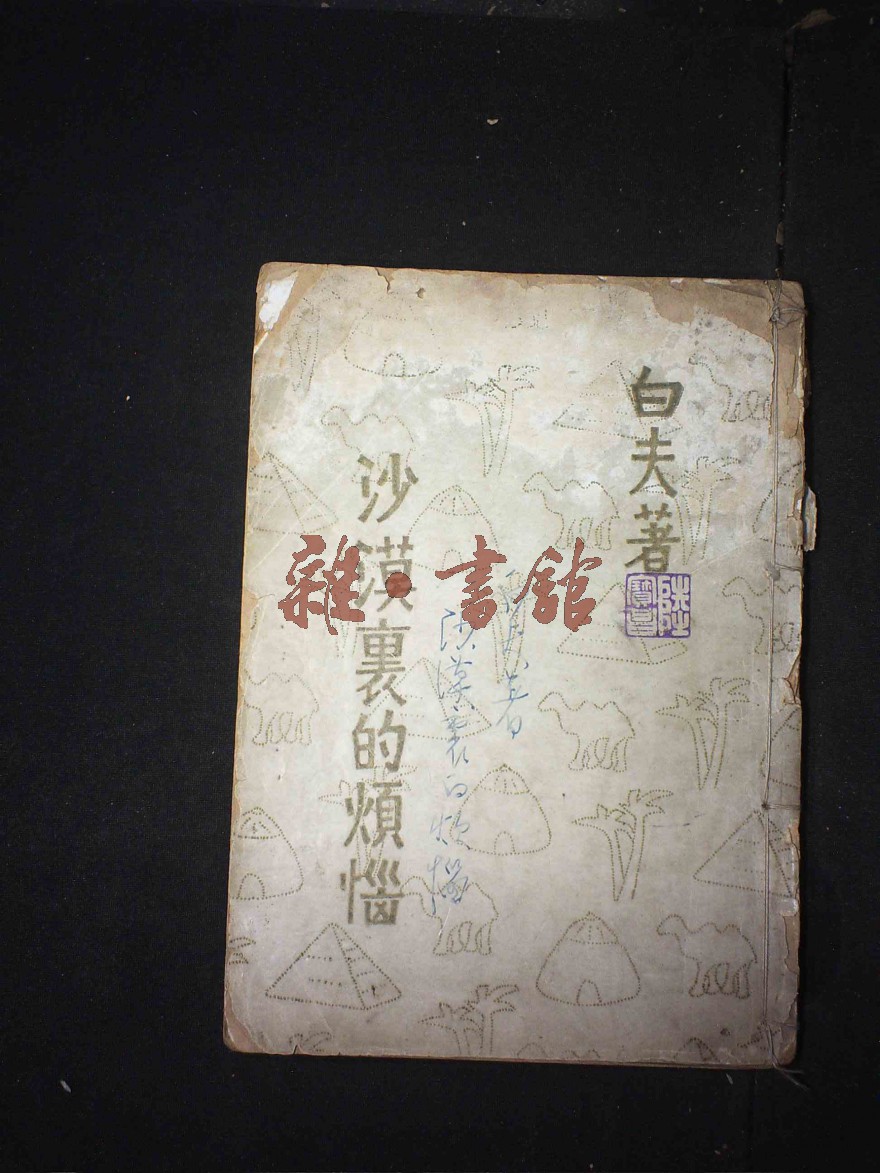 白夫著
沙漠裏的煩惱
雜·書館
白夫著
沙漠裏的煩惱